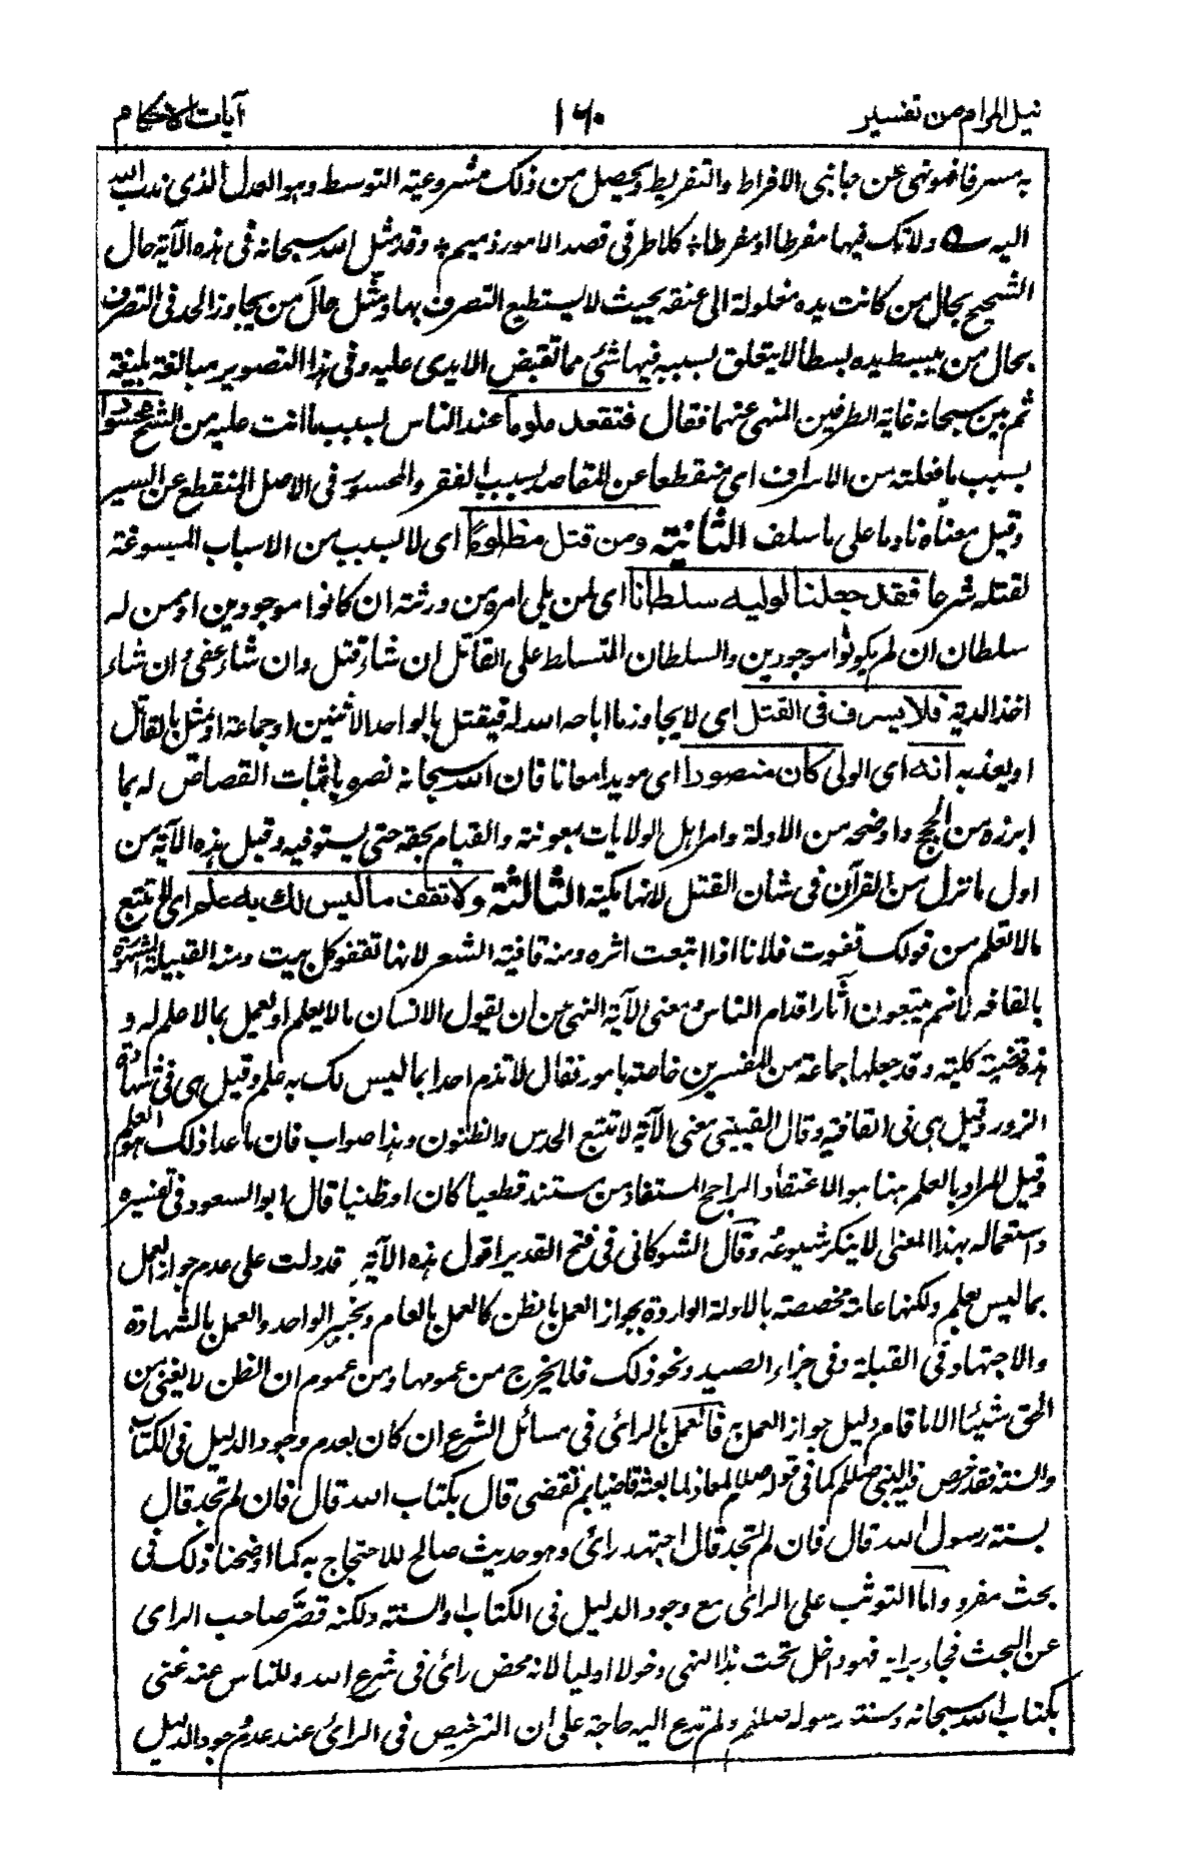 نيل المرام من تفسير ١٦٠ آيات الاحكام
به مسرفا فهو نهى عن جانبى الافراط والتفريط ويحصل من ذلك مشروعية التوسط وهو العدل الذى ندب الله
اليه ولا تك فيها مفرطا او مفرطا، كلا طرفى قصد الامور ذميم، وقد مثل الله سبحانه فى هذه الآية حال
الشحيح بحال من كانت يده مغلولة الى عنقه بحيث لا يستطيع التصرف بها ومثل حال من يجاوز الحد فى التصرف
بحال من يبسط يده بسطا لا يتعلق بسببه فيها شئ مما تقبض الايدى عليه وفى هذا التصوير مبالغة بليغة
ثم بين سبحانه غاية الطرفين المنهى عنهما فقال فتقعد ملوما عند الناس بسبب ما انت عليه من الشح محسورا
بسبب ما فعلته من الاسراف اى منقطعا عن المقاصد بسبب الفقر والمحسور فى الاصل المنقطع عن السير
وقيل معناه نادما على ما سلف الثانية ومن قتل مظلوما اى لا بسبب من الاسباب المسوغة
لقتله شرعا فقد جعلنا لوليه سلطانا اى لمن يلى امره من ورثته ان كانوا موجودين او ممن له
سلطان ان لم يكونوا موجودين والسلطان التسلط على القاتل ان شاء قتل وان شاء عفى وان شاء
اخذ الدية فلا يسرف فى القتل اى لا يجاوز ما اباحه الله له فيقتل بالواحد الاثنين او جماعة او يمثل بالقاتل
او يعذبه انه اى الولى كان منصورا اى مويدا معانا فان الله سبحانه نصره باثبات القصاص له بما
ابرزه من الحجج واوضحه من الادلة وامر اهل الولايات بمعونته والقيام بحقه حتى يستوفيه وقيل هذه الآية من
اول ما نزل من القرآن فى شان القتل لانها مكية الثالثة ولا تقف ما ليس لك به علم اى لا تتبع
ما لا تعلم من قولك قفوت فلانا اذا اتبعت اثره ومنه قافية الشعر لانها تقفو كل بيت ومنه القبيلة المشهورة
بالقافه لانهم يتبعون آثار اقدام الناس ومعنى الآية النهى عن ان يقول الانسان ما لا يعلم او يعمل بما لا علم له و
هذه قضية كلية وقد جعلها جماعة من المفسرين خاصة بامور فقال لا تذم احدا بما ليس لك به علم وقيل هى فى شهادة
الزور وقيل هى فى القافة وقال القتيبى معنى الآية لا تتبع الحدس والظنون وهذا صواب فان ما عدا ذلك هو العلم
وقيل المراد بالعلم هنا هو الاعتقاد الراجح المستفاد من مستند قطعيا كان او ظنيا قال ابو السعود فى تفسيره
واستعماله بهذا المعنى لا ينكر شيوعه وقال الشوكانى فى فتح القدير اقول هذه الآية قد دلت على عدم جواز العمل
بما ليس بعلم ولكنها عامة مخصصة بالادلة الواردة بجواز العمل بالظن كالعمل بالعام وبخبر الواحد والعمل بالشهادة
والاجتهاد فى القبلة وفى جزاء الصيد ونحو ذلك فلا يخرج من عمومها ومن عموم ان الظن لا يغنى من
الحق شيئا الا ما قام دليل جواز العمل به فالعمل بالرائ فى مسائل الشرع ان كان لعدم وجود الدليل فى الكتاب
والسنة فقد رخص فيه النبى صللم كما فى قوله صللم لمعاذ لما بعثه قاضيا بم تقضى قال بكتاب الله قال فان لم تجد قال
بسنة رسول الله قال فان لم تجد قال اجتهد رائ وهو حديث صالح للاحتجاج به كما اوضحنا ذلك فى
بحث مفرد واما التوثب على الرائ مع وجود الدليل فى الكتاب او السنة ولكنه قصّر صاحب الراى
عن البحث فجاء برايه فهو داخل تحت هذا النهى دخولا اوليا لانه محض رائ فى شرع الله وللناس عنه غنى
بكتاب الله سبحانه وسنة رسوله صللم ولم تدع اليه حاجة على ان الترخيص فى الرائ عند عدم وجود الدليل